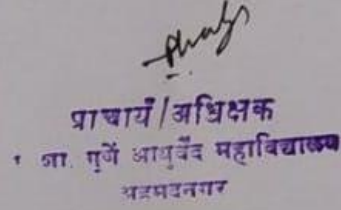 प्राचार्य/अधिक्षक
गुणे आयुर्वेद महाविद्यालय
अहमदनगर